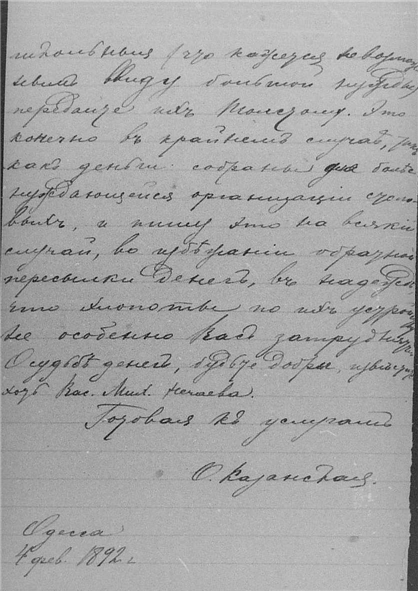 (что кажется невозмож-
нымъ ввиду большой нужды,
передайте ихъ Толстому. Это
конечно въ крайнемъ случаѣ, такъ
какъ деньги собраны для болѣе
нуждающейся организаціи столо-
выхъ, и пишу это на всякій
случай, во избѣжаніи обратной
пересылки денегъ, въ надеждѣ
что хлопоты по ихъ устрой
не особенно Васъ затруднятъ.
О судьбѣ денегъ, будьте добры,
хоть Вас. Мих. Нечаева.
Готовая къ услугамъ
О. Казанская.
Одесса
4 фев. 1892 г.